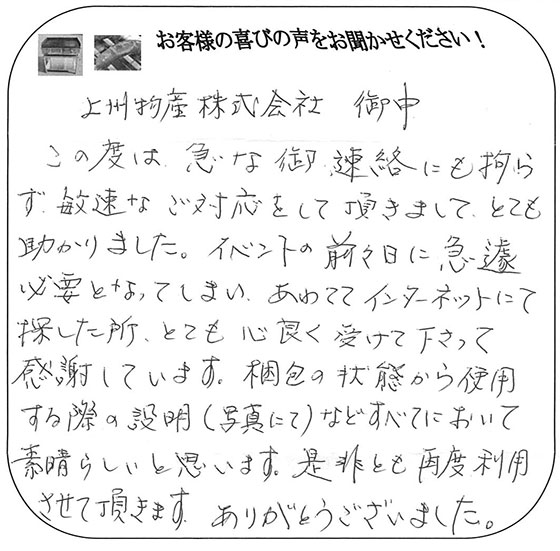 お客様の喜びの声をお聞かせください！
上州物産株式会社 御中
この度は、急な御連絡にも拘ら
ず、敏速なご対応をして頂きまして、とても
助かりました。イベントの前々日に急遽
必要となってしまい、あわててインターネットにて
探した所、とても心良く受けて下さって
感謝しています。梱包の状態から使用
する際の説明（写真にて）などすべてにおいて
素晴らしいと思います。是非とも再度利用
させて頂きます。ありがとうございました。